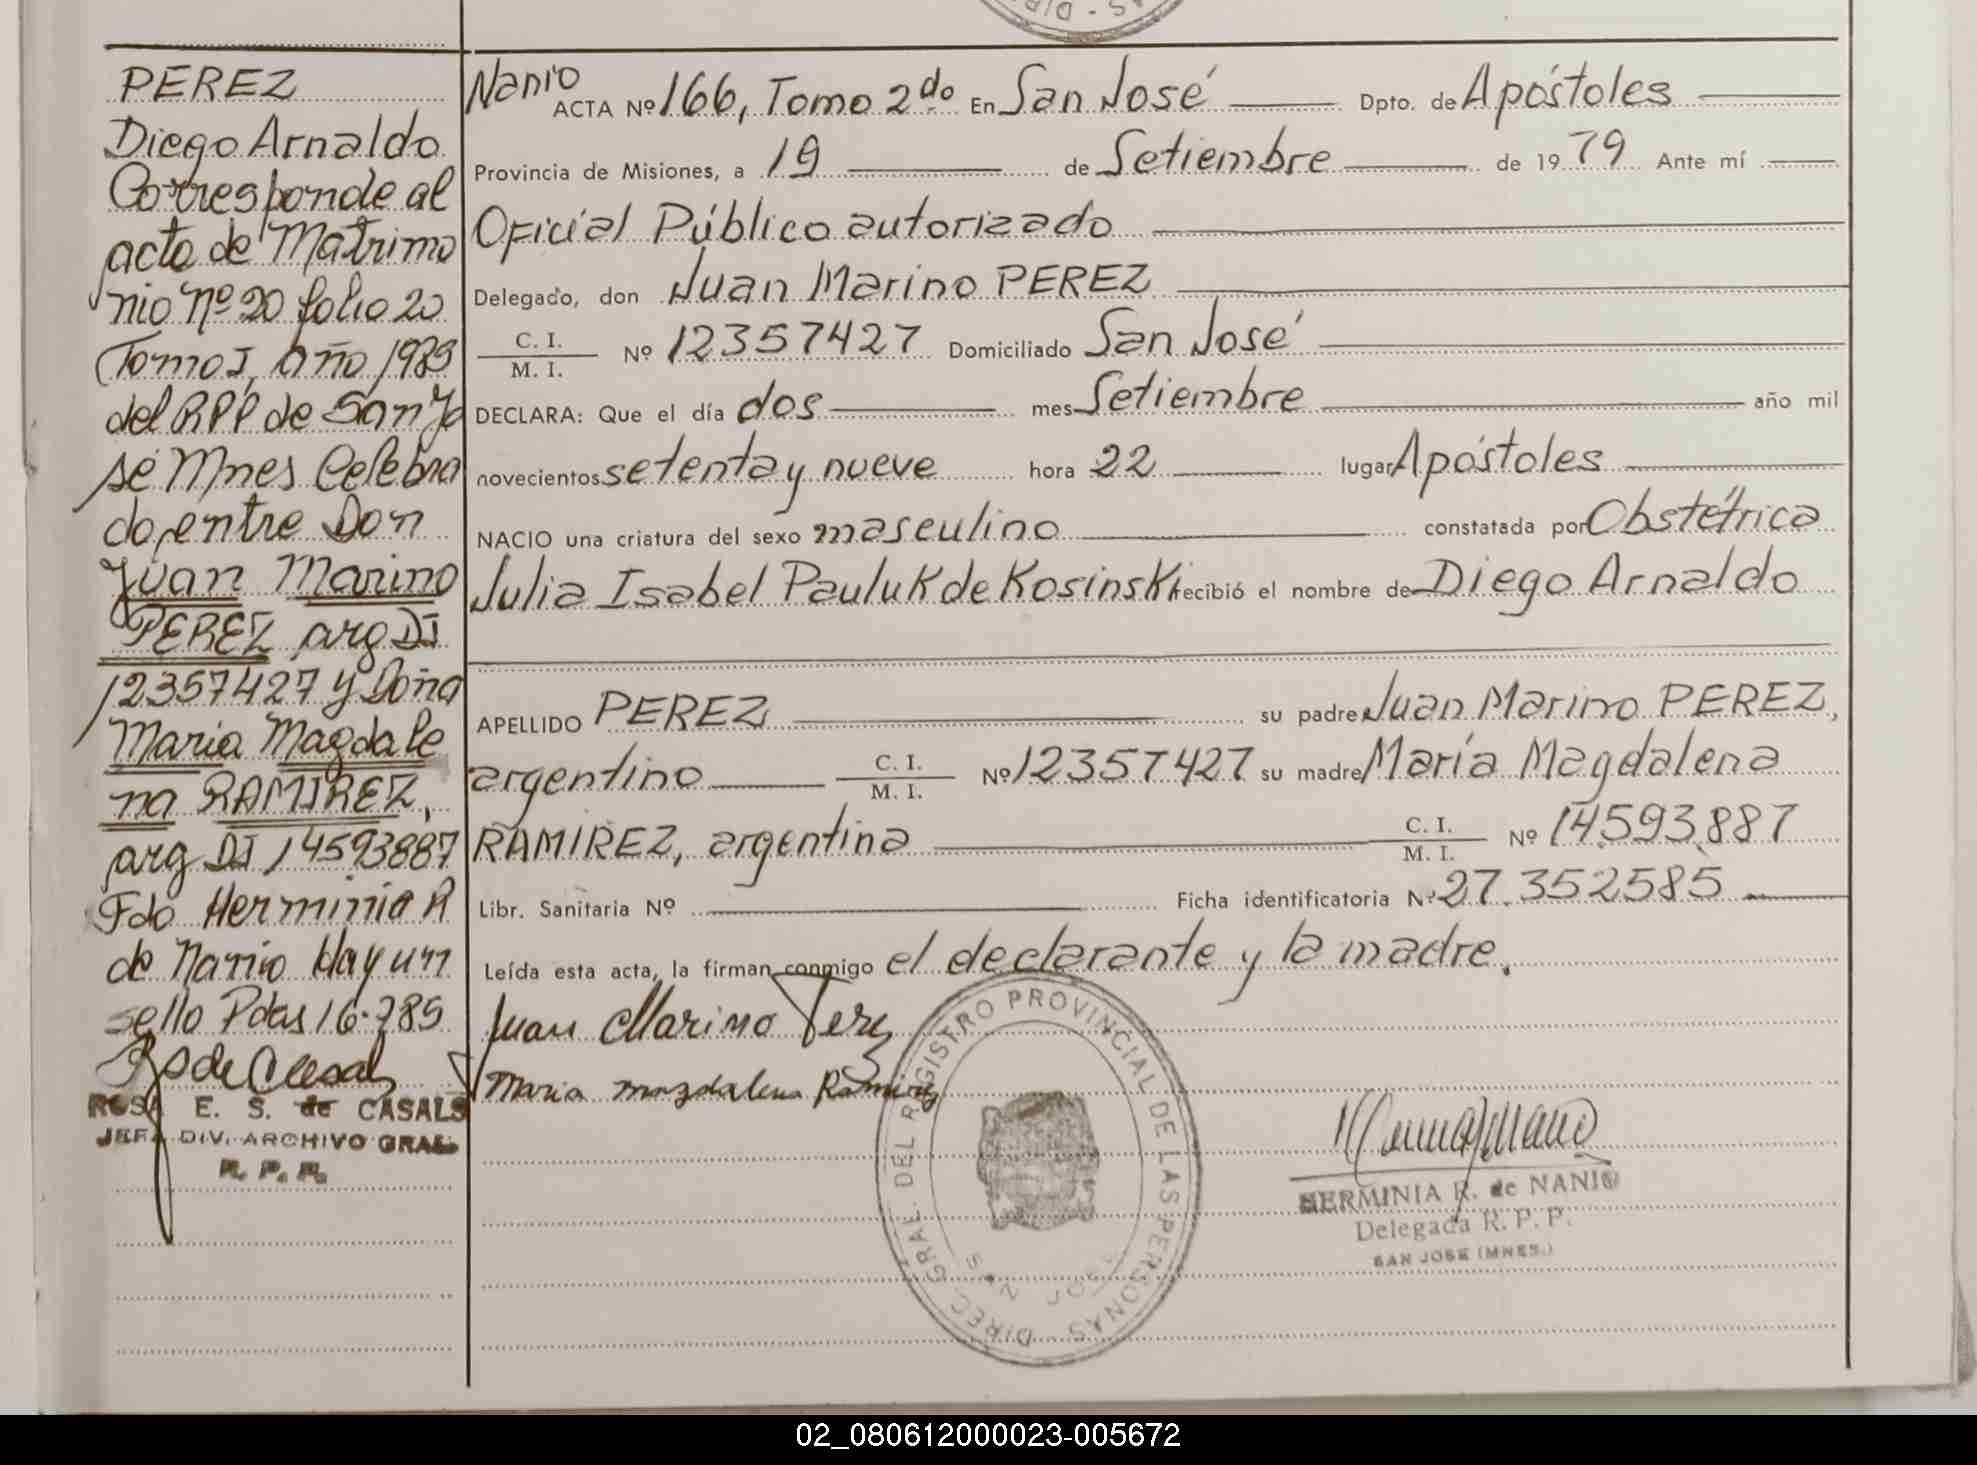 PEREZ
Diego Arnaldo
Corresponde al
acta de Matrimo
nio nº 20 folio 20
Tomo I, año 1989
del RPP de San Jo
sé Mnes Celebra
do entre Don
Juan Marino
PEREZ arg DI
12357427 y Doña
Maria Magdale
na RAMIREZ,
arg DI 14593887
Fdo Herminia R
de Nanio Hay un
sello Pdas 16-
ROSA E. S. de CASALS
JEFA DIV. ARCHIVO GRAL.
R. P. P.
DIR
Nanio
ACTA Nº 166, Tomo 2do En San José Dpto. de Apóstoles
Provincia de Misiones, a 19 de Setiembre de 1979 Ante mí
Oficial Público autorizado
Delegado, don Juan Marino PEREZ
C. I.
M. I. Nº 12357427 Domiciliado San José
DECLARA: Que el día dos mes Setiembre año mil
novecientos setenta y nueve hora 22 lugar Apóstoles
NACIO una criatura del sexo masculino constatada por Obstétrica
Julia Isabel Pauluk de Kosinski recibió el nombre de Diego Arnaldo
APELLIDO PEREZ su padre Juan Marino PEREZ,
argentino C. I.
M. I. Nº 12357427 su madre María Magdalena
RAMIREZ, argentina C. I.
M. I. Nº 14593887
Libr. Sanitaria Nº Ficha identificatoria Nº 27.352585
Leída esta acta, la firman conmigo el declarante y la madre.
Juan Marino Perez
Maria magdalena Ramirez
DIREC. GRAL. DEL REGISTRO PROVINCIAL DE LAS PERSONAS
SAN JOSE
HERMINIA R. de NANIO
Delegada R. P. P.
SAN JOSE (MNES.)
02_080612000023-005672